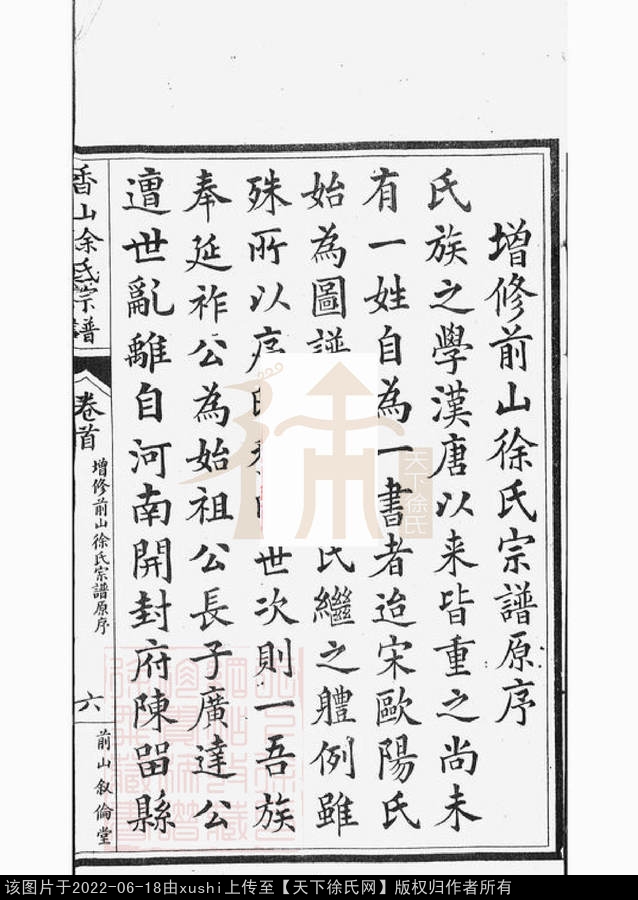 增修前山徐氏宗譜原序
氏族之學漢唐以來皆重之尚未
有一姓自為一書者迨宋歐陽氏
始為圖譜氏繼之體例雖
殊所以序世次則一吾族
奉延祚公為始祖公長子廣達公
遭世亂離自河南開封府陳留縣
香山徐氏宗譜
卷首
增修前山徐氏宗譜原序
六
前山敘倫堂
天下徐氏
该图片于2022-06-18由xushi上传至【天下徐氏网】版权归作者所有